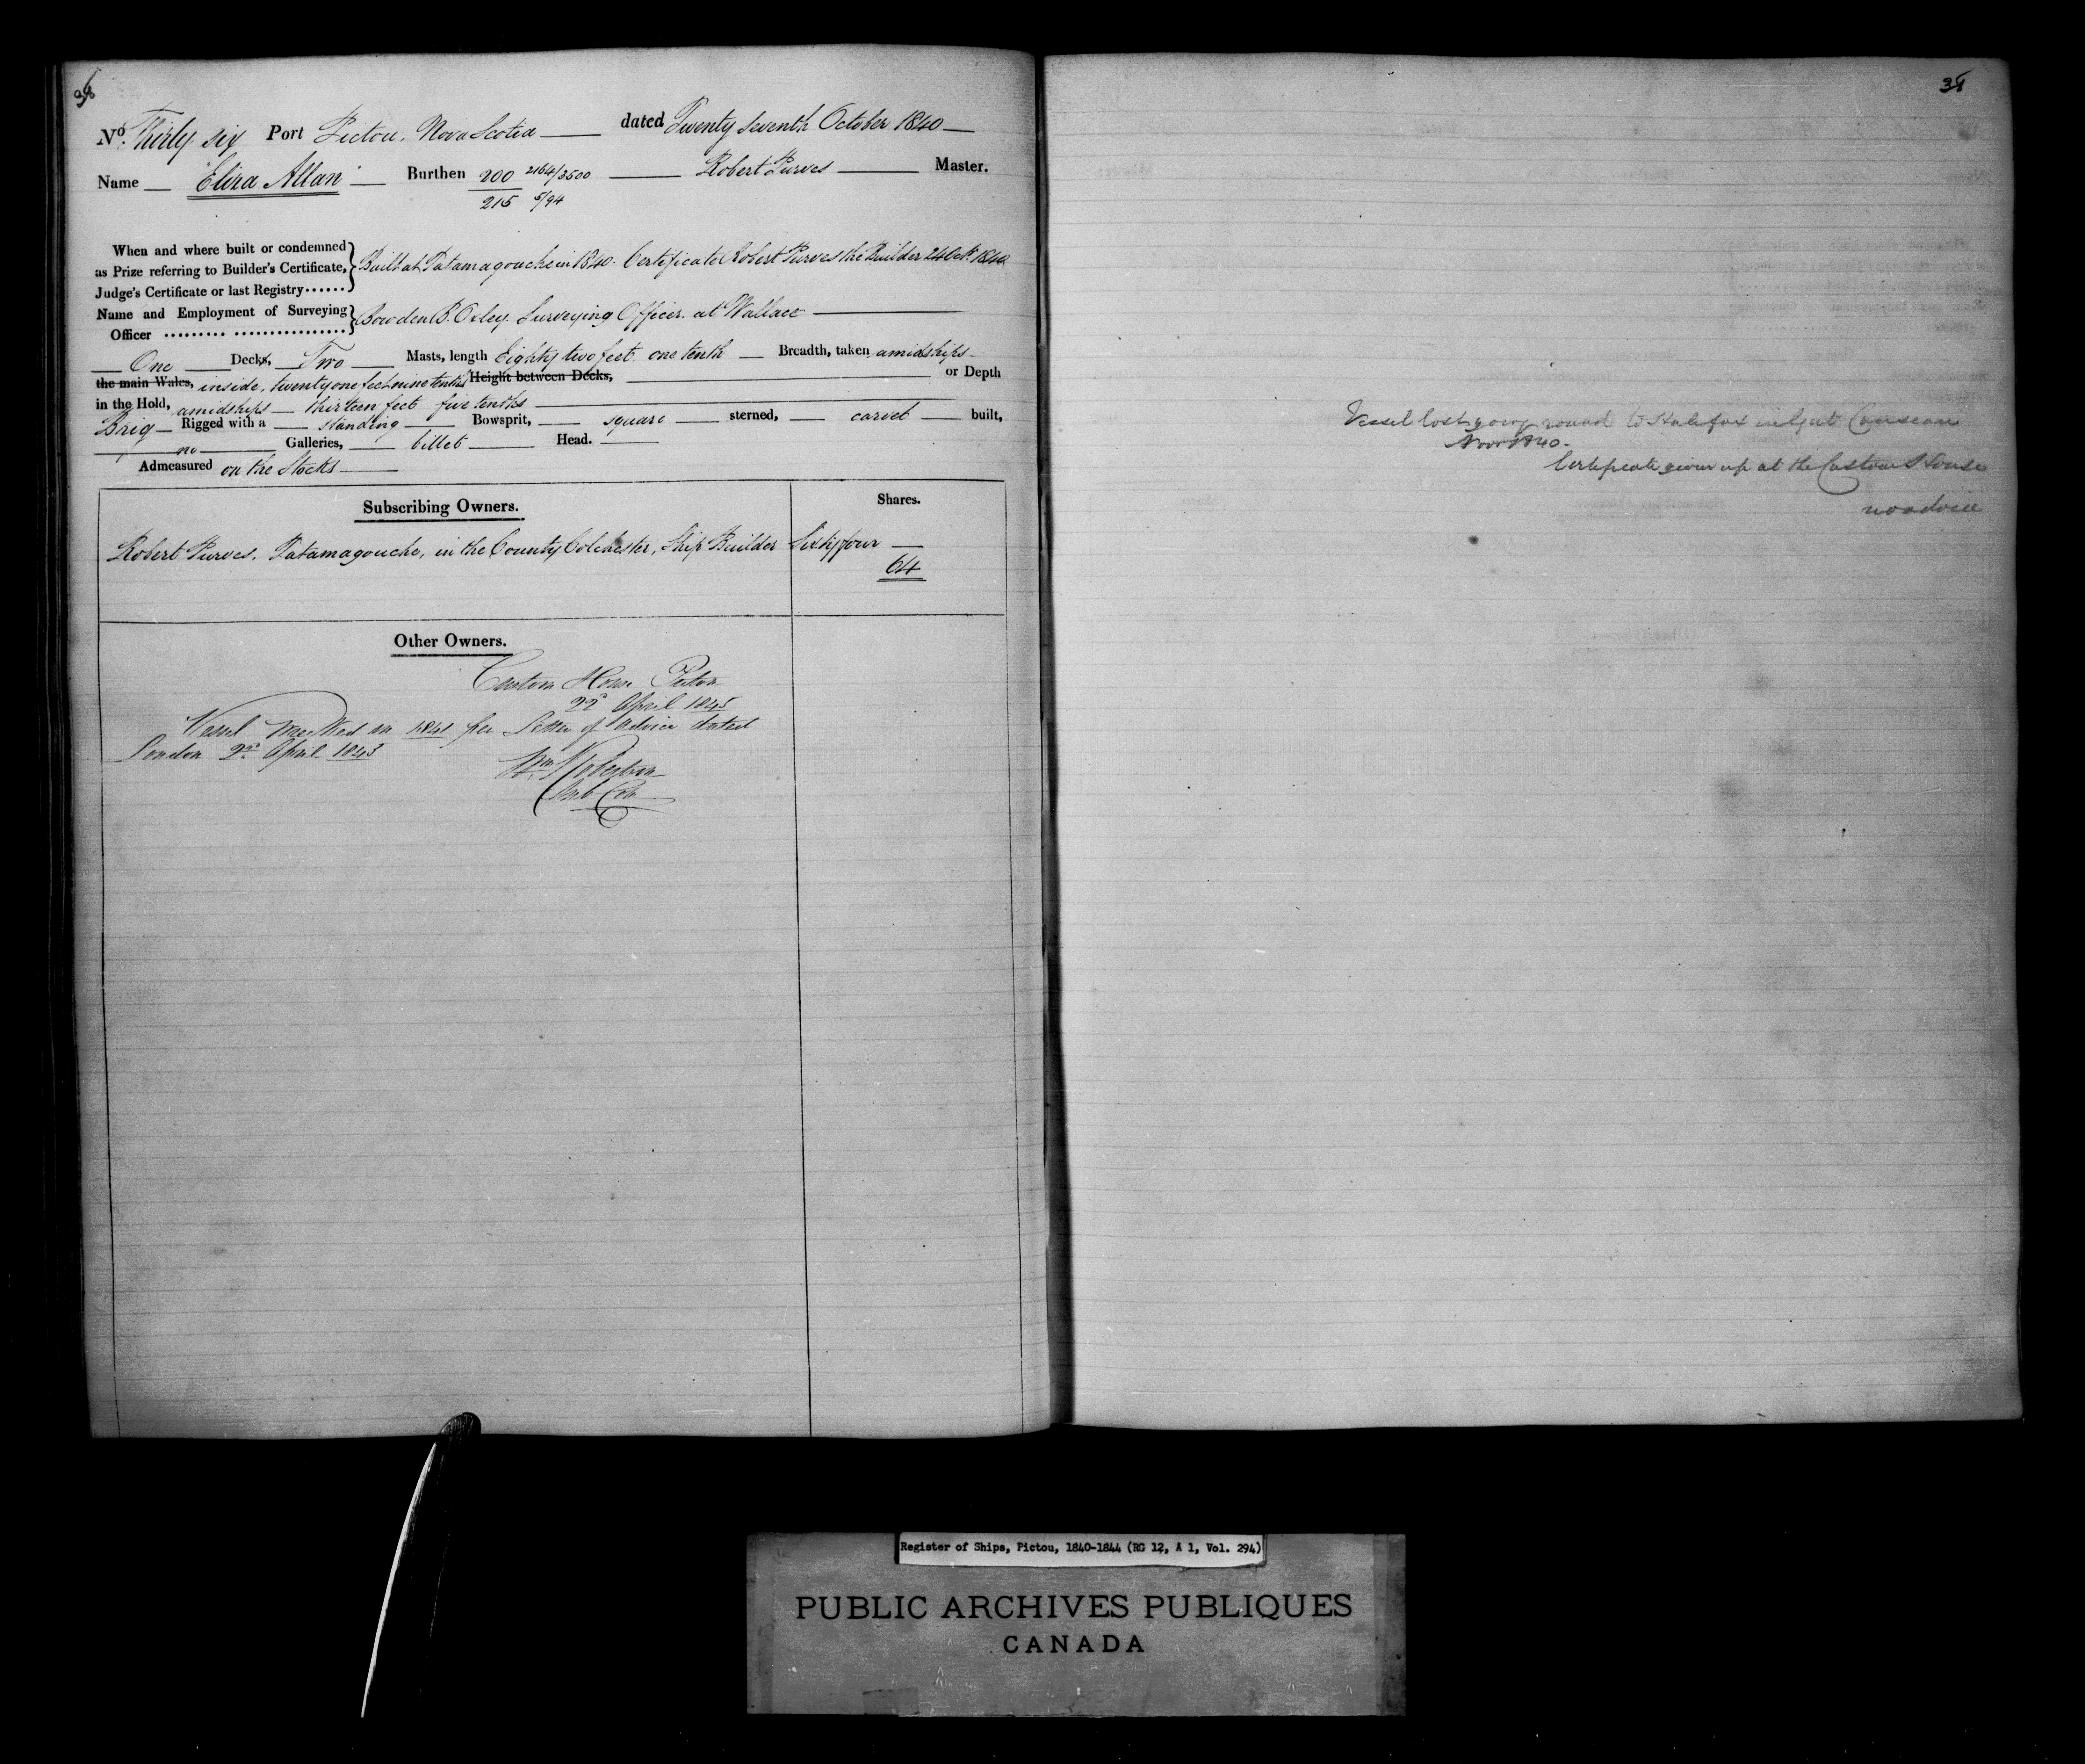 36
No. Thirty six Port Pictou, Nova Scotia dated Twenty Seventh October 1840
Name "Eliza Allan" Burthen 200 2164/3500 Robert Purves Master.
215 5/94
When and where built or condemned
as Prize referring to Builder's Certificate,
Judge's Certificate or last Registry......
Built at Tatamagouche in 1840. Certificate Robert Purves the Builder 24 Oct. 1840
Name and Employment of Surveying
Officer
Bowden B. Oxley. Surveying Officer. at Wallace
One Decks, Two Masts, length Eighty two feet one tenth Breadth, taken amidships
the main Wales, inside, twenty one feet nine tenths Height between Decks, or Depth
in the Hold, amidships thirteen feet five tenths
Brig Rigged with a standing Bowsprit, square sterned, carvel built,
no Galleries, billet Head.
Admeasured on the Stocks
Subscribing Owners. Shares.
Robert Purves. Tatamagouche, in the County Colchester, Ship Builder Sixty four
64
Other Owners.
Custom House Pictou
22d April 1845
Vessel Wrecked in 1841 per Letter of Advice dated
London 2d April 1845
Wm Robertson
Sub Col
Vessel lost going round to Halifax in Gut Canseau
Novr 1840.
Certificate given up at the Custom House
no advice
Register of Ships, Pictou, 1840-1844 (RG 12, A 1, Vol. 294)
PUBLIC ARCHIVES PUBLIQUES
CANADA